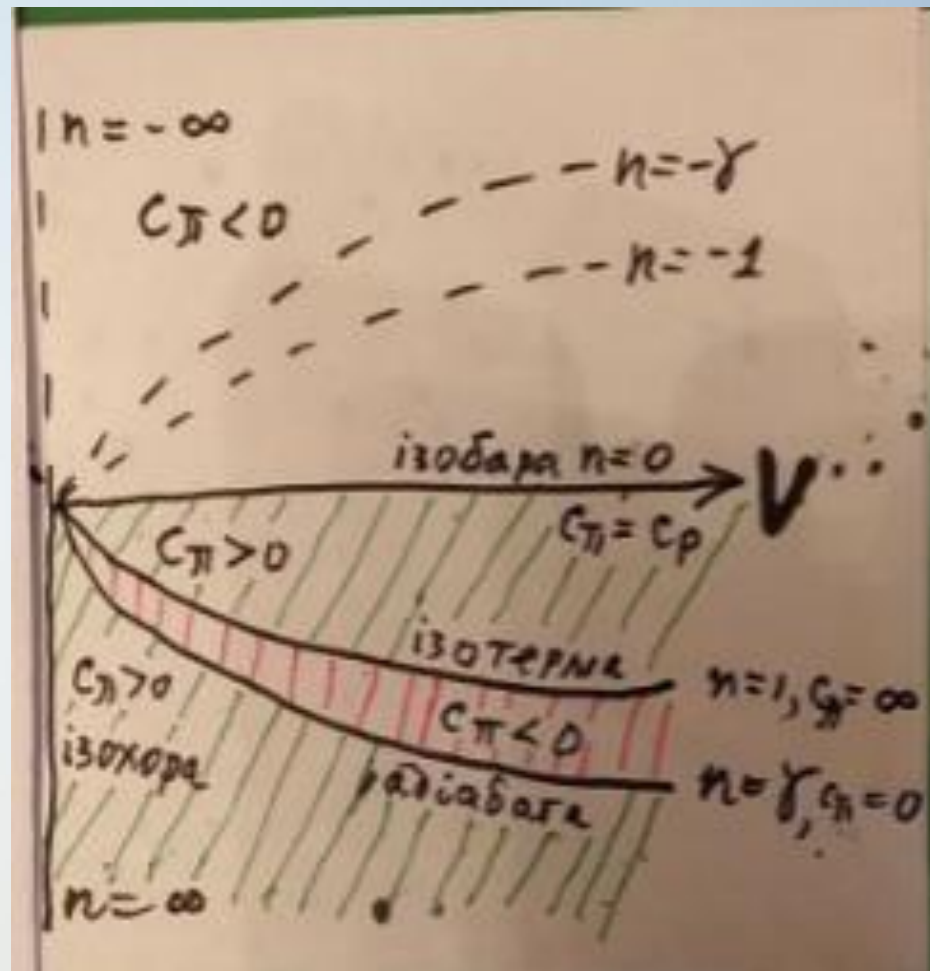 n = - ∞
n = -γ
Cπ < 0
n = -1
ізобара n = 0
V
Cπ = Cp
Cπ > 0
ізотерма
n = 1, Cπ = ∞
Cπ > 0
Cπ < 0
ізохора
адіабата
n = γ, Cπ = 0
n = ∞